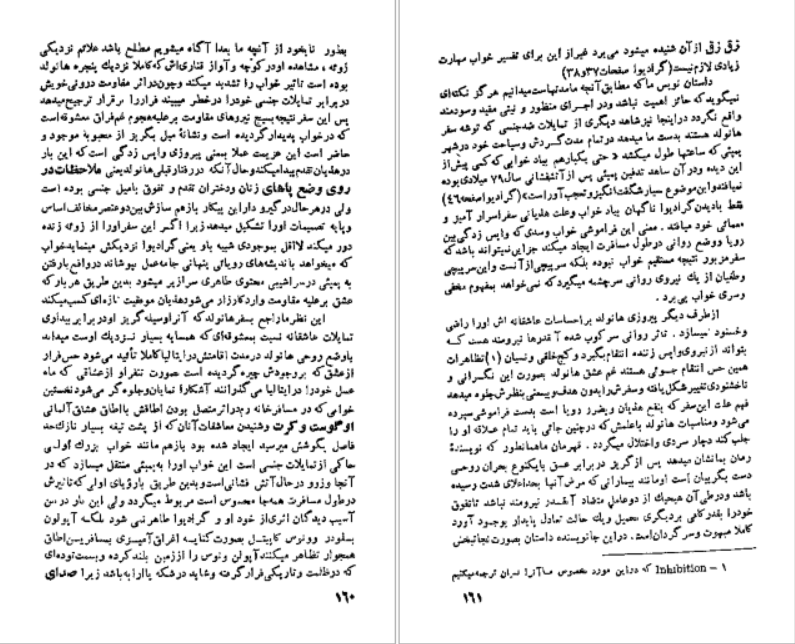 بطور ناخود از آنچه ما بعدا آگاه میشویم مطلع باشد علائم نزدیکی
زوئه ، مشاهده اودر کوچه وآواز قناری‌اش که کاملا نزدیک پنجره هانولد
بوده است تاثیر خواب را تشدید میکند وچون دراثر مقاومت درونی‌خویش
دربرابر تمایلات جنسی خودرا درخطر میبیند فراررا برقرار ترجیح‌میدهد
پس این سفر نتیجه بسیج نیروهای مقاومت برعلیه هجوم غم فراق معشوقه است
که درخواب پدیدار گردیده است و نشانهٔ میل بگریز از محبوبهٔ موجود و
حاضر است این هزیمت عملا بمعنی پیروزی واپس زدگی است که این بار
درهذیان تقدم پیدامیکند وحال آنکه دررفتارقبلی هانولدیعنی ملاحظات در
روی وضع پاهای زنان ودختران تقدم و تفوق بامیل جنسی بوده است
ولی درهرحال درگیرو داراین پیکار بازهم سازش بین‌دوعنصرمخالف‌اساس
وپایه تصمیمات اورا تشکیل میدهد زیرا اگر این سفراورا از زوئه زنده
دور میکند لااقل بموجودی شبیه باو یعنی گرادیوا نزدیکش مینماید خواب
که میخواهد باندیشه‌های رویائی پنهانی جامه عمل بپوشاند درواقع بارفتن
به پمپئی در سراشیبی محتوی ظاهری سرازیر میشود بدین طریق هربارکه
عشق برعلیه مقاومت واردکارزار می‌شودهذیان موفقیت تازه‌ای کسب‌میکند
این نظرما راجع بسفرهانولد که آنرا وسیله گریز اودربرابر بیداری
تمایلات عاشقانه نسبت بمعشوقه‌ای که همسایه بسیار نزدیک اوست میداند
باوضع روحی هانولد درمدت اقامتش درایتالیا کاملا تأئید می‌شود حس فرار
ازعشق که بروجودش چیره گردیده است بصورت تنفراو ازعشاقی که ماه
عسل خودرا درایتالیا می‌گذرانند آشکارا نمایان وجلوه گر می‌شود نخستین
خوابی که در مسافرخانه رم دراثر متصل بودن اطاقش با اطاق عشاق آلمانی
اوگوست و گرت وشنیدن معاشقات آنان که از پشت تیغه بسیار نازک حد
فاصل بگوشش میرسید ایجاد شده بود بازهم مانند خواب بزرگ اولی
حاکی از تمایلات جنسی است این خواب اورا به پمپئی منتقل میسازد که در
آنجا وزوو درحال آتش فشانی است و بدین طریق بارؤیای اولی که تاثیرش
درطول مسافرت همه جا محسوس است مربوط میگردد ولی این بار در بین
آسیب دیدگان اثری از خود او و گرادیوا ظاهر نمی شود بلکه آپولون
بلودر وونوس کاپیتل بصورت کنایه اغراق آمیزی بمسافرین اطاق
همجوار تظاهر میکنند آپولن ونوس را اززمین بلند کرده وبسمت توده‌ای
که درظلمت وتاریکی قرار گرفته وشاید درشکه یا ارابه باشد زیرا صدای
۱۶۰
ترق ترق از آن شنیده میشود می‌برد غیر از این برای تفسیر خواب مهارت
زیادی لازم نیست (گرادیوا صفحات ۳۷و۳۸)
داستان نویس ما که مطابق آنچه مامدتهاست میدانیم هرگز نکته‌ای
نمیگوید که حائز اهمیت نباشد ودر اجرای منظور و نیتی مفید وسودمند
واقع نگردد دراینجا نیز شاهد دیگری از تمایلات ضدجنسی که توشه سفر
هانولد هستند بدست ما میدهد درتمام مدت گردش وسیاحت خود درشهر
پمپئی که ساعتها طول میکشد « حتی یکبارهم بیاد خوابی که کمی پیش از
این دیده ودرآن شاهد تدفین پمپئی پس از آتشفشانی سال ۷۹ میلادی بوده
نمیافتد واین‌موضوع بسیار شگفت‌انگیز وتعجب‌آوراست» (گرادیوا صفحه ۴۶)
فقط بادیدن گرادیوا ناگهان بیاد خواب وعلت هذیانی سفر اسرار آمیز و
معمائی خود میافتد . معنی این فراموشی خواب وسدی که واپس زدگی‌بین
رویا ووضع روانی درطول مسافرت ایجاد میکند جزاین نمیتواند باشد که
سفر مزبور نتیجه مستقیم خواب نبوده بلکه سرپیچی از آنست و این‌سرپیچی
وطغیان از یک نیروی روانی سرچشمه میگیرد که نمی‌خواهد بمفهوم مخفی
وسری خواب پی برد .
ازطرف دیگر پیروزی هانولد براحساسات عاشقانه اش اورا راضی
وخشنود نمیسازد . تاثر روانی سرکوب شده آنقدرها نیرومند هست که
بتواند از نیروی واپس زننده انتقام بگیرد و کج‌خلقی ونسیان (۱) تظاهرات
همین حس انتقام جوئی هستند غم عشق هانولد بصورت این نگرانی و
ناخشنودی تغییرشکل یافته وسفرش را بدون هدف و بیمعنی بنظرش جلوه میدهد
فهم علت این سفر که بنفع هذیان وبضرر دویا است بدست فراموشی سپرده
می‌شود ومناسبات هانولد باعلمش که درچنین جائی باید تمام علاقه او را
جلب کند دچار سردی واختلال میگردد . قهرمان ما همانطور که نویسندهٔ
رمان بمانشان میدهد پس ازگریز دربرابر عشق بایک نوع بحران روحی
دست بگریبان است او مانند بیمارانی که مرض آنها بحداعلای شدت رسیده
باشد ودرطی آن هیچیک از دوعامل متضاد آنقدر نیرومند نباشد تا تفوق
خودرا بقدر کافی بردیگری تحمیل ویک حالت تعادل پایدار بوجود آورد
کاملا مبهوت وسرگردان است. دراین جا نویسنده داستان بصورت نجاتبخش
۱ – Inhibition که دراین مورد بخصوص ما آنرا نسیان ترجمه میکنیم
۱۶۱